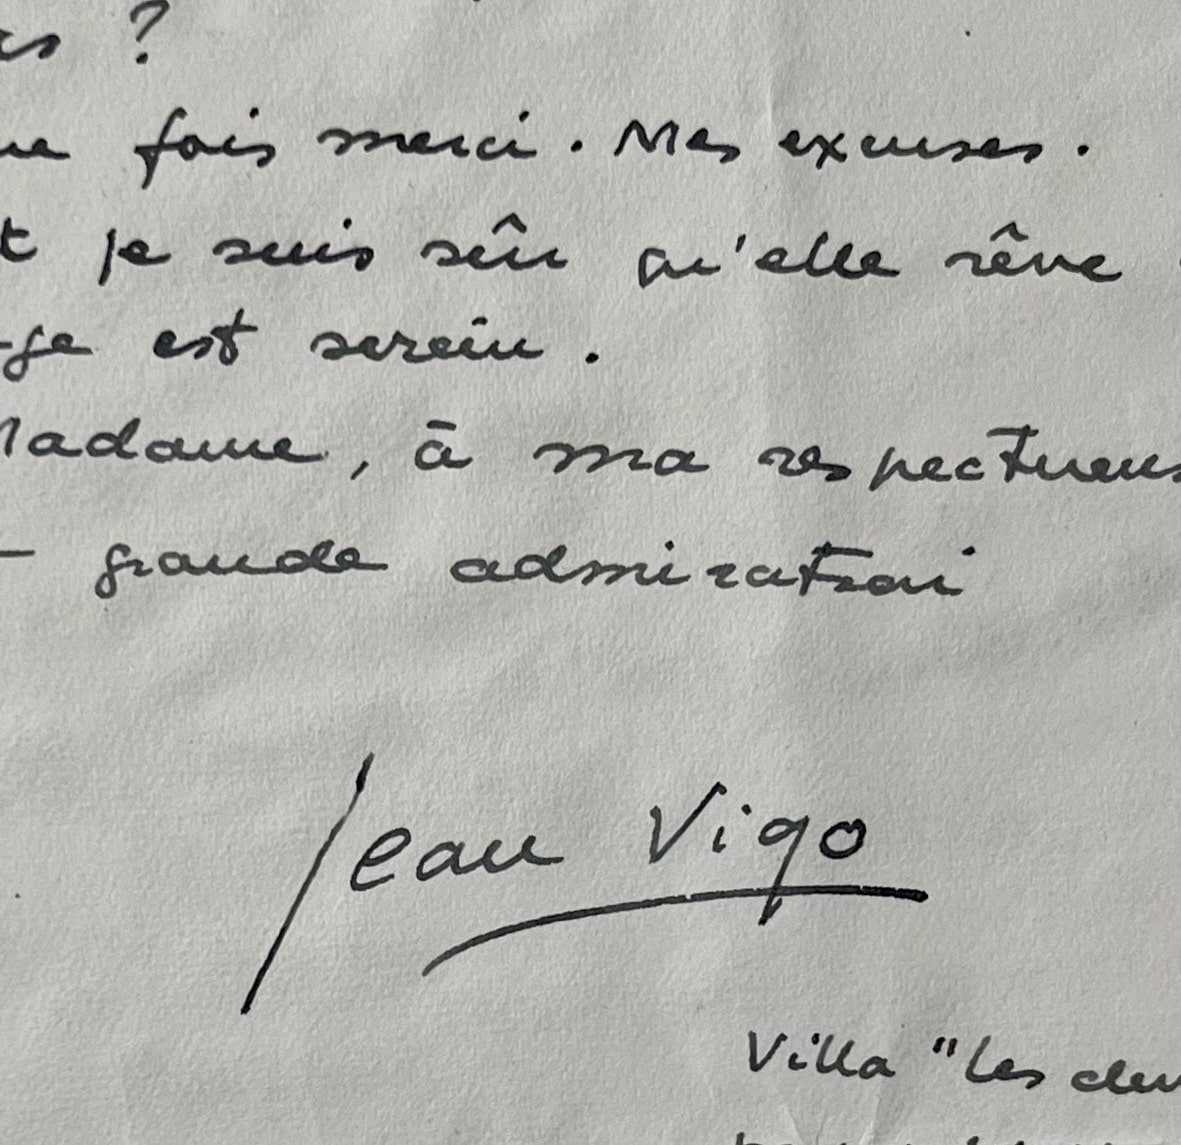 as ?
ne fois merci . Mes excuses .
t je suis sûr qu'elle rêve
ge est serein .
Madame , à ma respectueus
- grande admiration
Jean Vigo
Villa "les deu